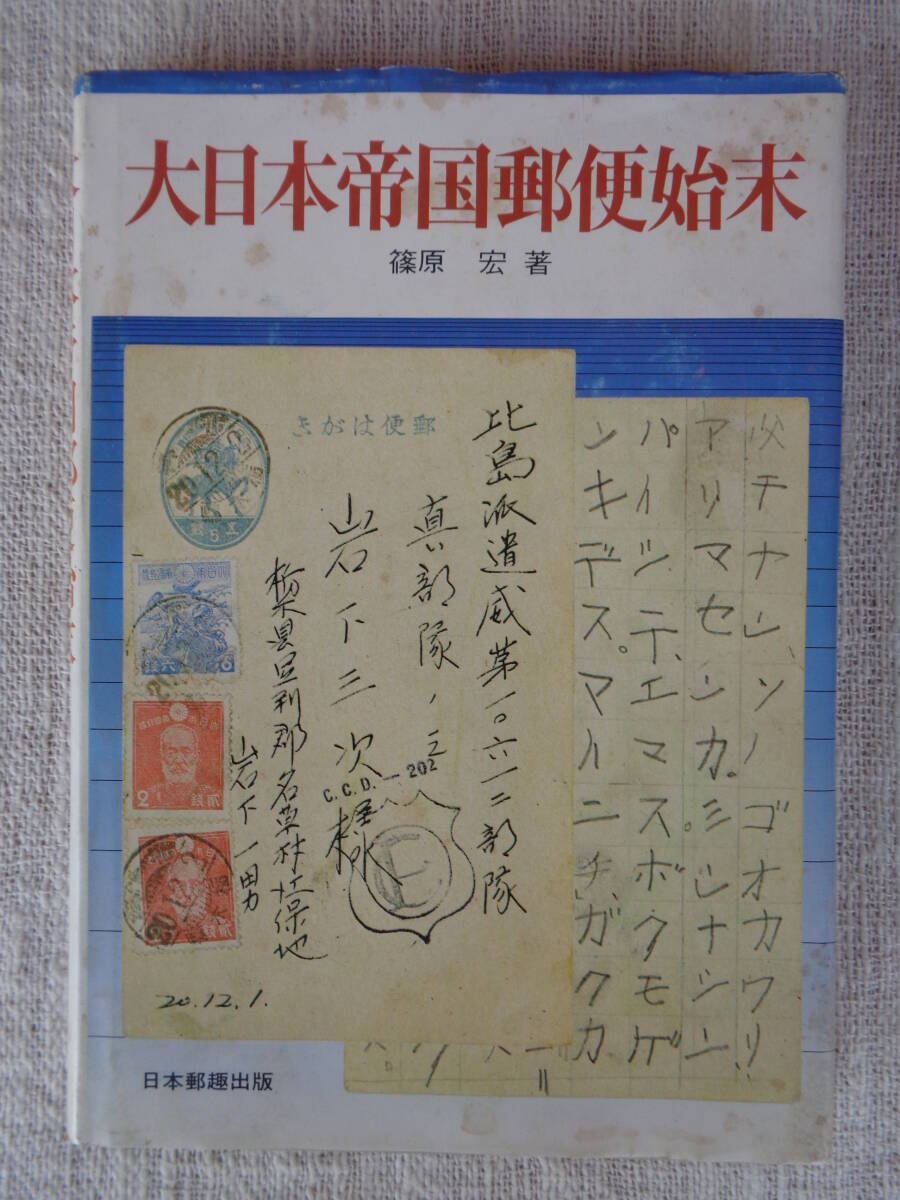 大日本帝国郵便始末
篠原 宏 著
きがは便郵
五5銭
比島派遣威第一〇六一二部隊
真部隊ノ三
山石下三次様
栃木県足利郡名草村
山石下一男
C.C.D.—202
20.12.1.
父チナシ、ソノゴオカワリ
アリマセンカ。ミンナシン
パイシテ、エマスボクモゲ
ンキデスマイニチ、ガクカ
日本郵趣出版